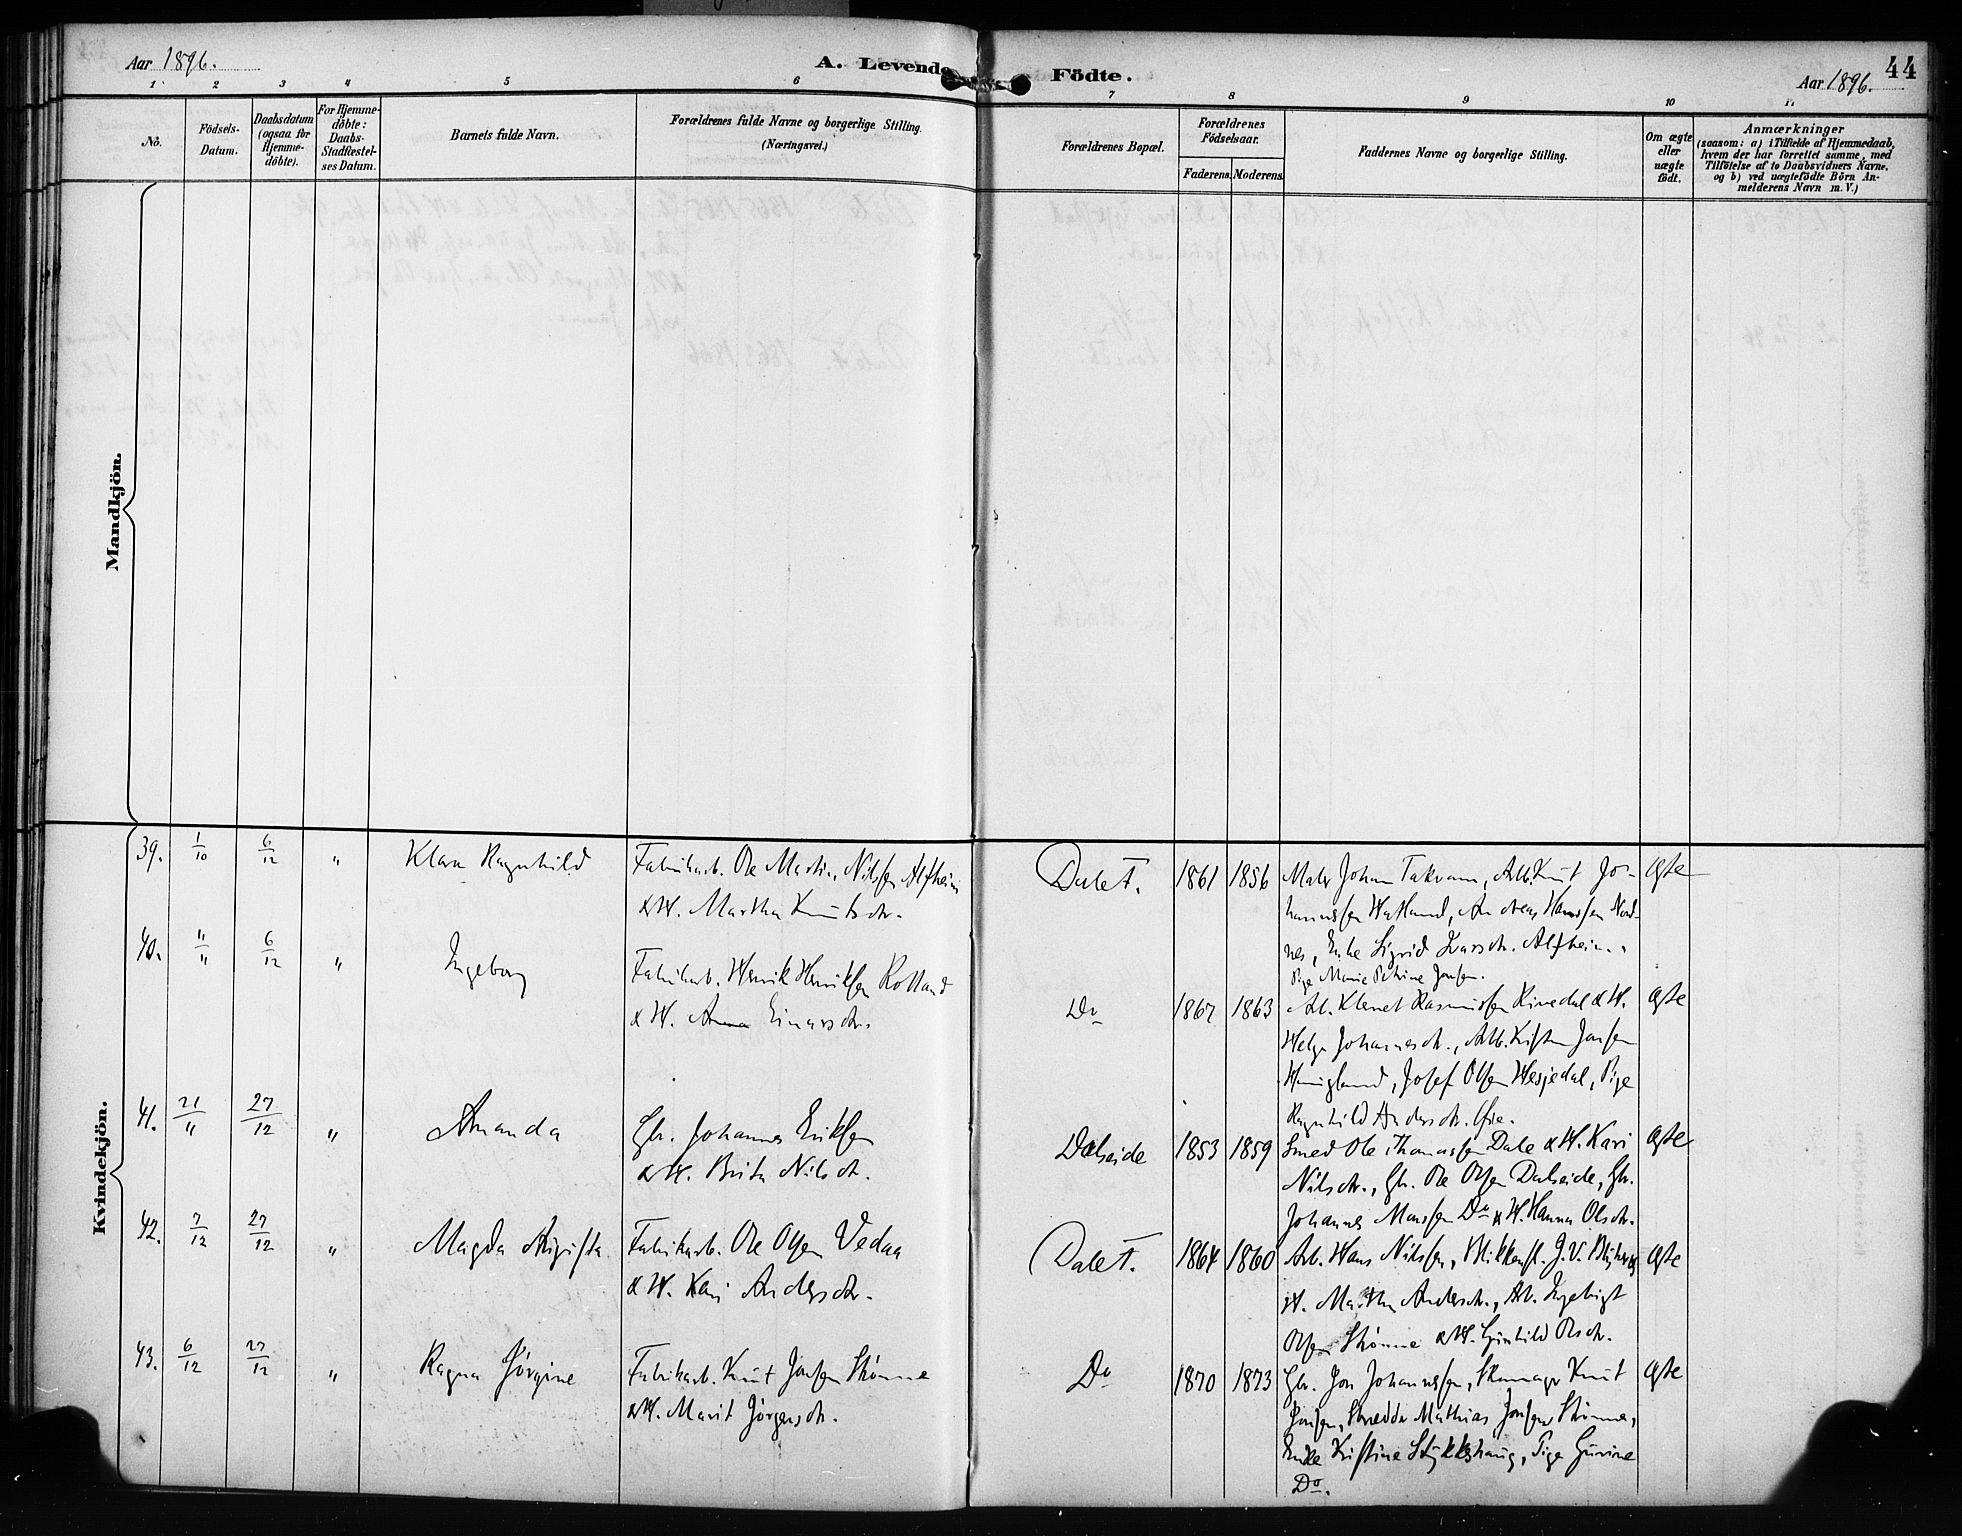 Aar 1896.
A. Levende Födte.
Aar 1896.
44
1 2 3 4 5 6 7 8 9 10 11
No.
Födsels-
Datum.
Daabsdatum
(ogsaa for
Hjemme-
döbte).
For Hjemme-
döbte:
Daabs-
Stadfæstel-
ses Datum.
Barnets fulde Navn.
Forældrenes fulde Navne og borgerlige Stilling.
(Næringsvei.)
Forældrenes Bopæl.
Forældrenes
Födselsaar.
Faderens. Moderens.
Faddernes Navne og borgerlige Stilling.
Om ægte
eller
uægte
födt.
Anmærkninger
(saasom: a) i Tilfælde af Hjemmedaab,
hvem der har forrettet samme, med
Tilföielse af to Daabsvidners Navne,
og b) ved uægtefödte Börn An-
melderens Navn m. V.)
Mandkjön.
Kvindekjön.
39. 1/10 6/12 " Klara Ragnhild
Fabrikarb. Ole Martin Nilssen Alfheim
& H. Martha Knutsdtr.
Dale F. 1861 1856
Maler Johan Takvam, Arb. Knut Jo-
hannessen Hatland, Andreas Hanssen Nord-
nes, Enke Sigrid Larsdtr. Alfheim,
Pige Marie Petrine Jonsen.
Ægte
40. "/" 6/12 " Ingeborg
Fabrikarb. Henrik Henriksen Rolland
& H. Anna Einarsdtr.
Do 1867 1863
Arb. Klemet Rasmussen Rivedal & H.
Helga Johannesdtr., Arb. Kristen Jonsen
Herigland, Josef Olsen Hesjedal, Pige
Ragnhild Andersdtr. Øie.
Ægte
41. 21/11 27/12 " Amanda
Gbr. Johannes Eriksen
& H. Brita Nilsdtr.
Dalseide 1853 1859
Smed Ole Thomassen Dale & H. Kari
Nilsdtr., Gbr. Ole Olsen Dalseide, Gbr.
Johannes Monsen Do & H. Hanna Olsdtr.
Ægte
42. 7/12 27/12 " Magda Augusta
Fabrikarb. Ole Olsen Vedaa
& H. Kari Andersdtr.
Dale F. 1864 1860
Arb. Hans Nilssen, Blikkensl. J. V.
H. Martha Andersdtr., Arb. Ingebrigt
Olsen Skønne & H. Gunhild Olsdtr.
Ægte
43. 6/12 27/12 " Ragna Jørgine
Fabrikarb. Knut Jonsen Skønne
& H. Marit Jørgensdtr.
Do 1870 1873
Gbr. Jon Johannessen, Skomager Knut
Jonsen, Skrædder Mathias Jonsen Skønne,
Enke Kristine Stykkshaug, Pige Gurine
Do.
Ægte